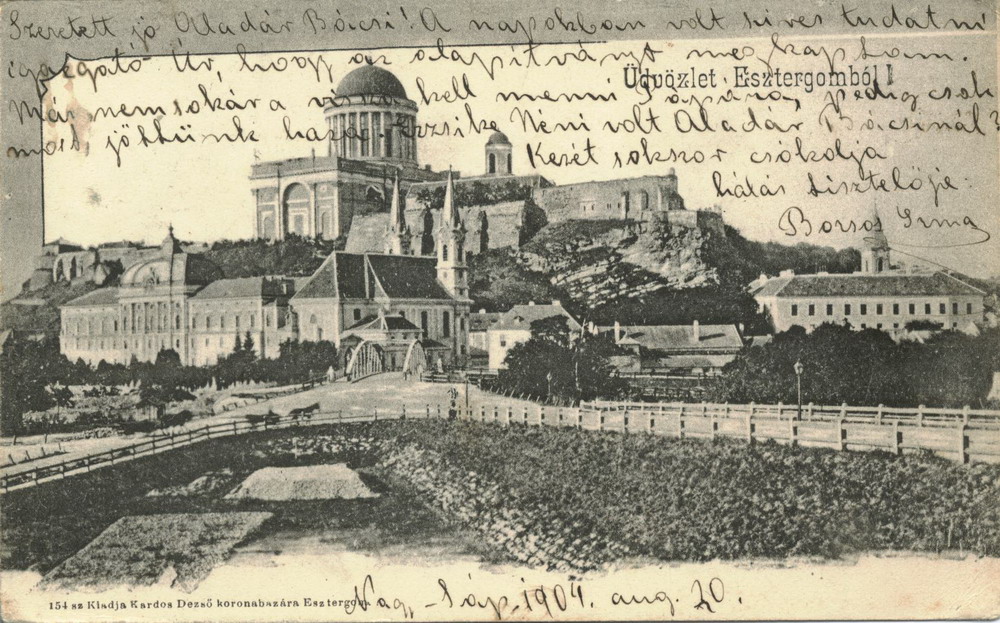 Szeretett jó Aladár Bácsi! A napokban volt szives tudatni
igazgató Úr, hogy az alapítványt megkaptam.
Üdvözlet Esztergomból!
Már nemsokára vissza kell menni Pápára, pedig csak
most jöttünk haza. Erzsike Néni volt Aladár Bácsinál?
Kezét sokszor csókolja
hálás tisztelője:
Boros Irma
154 sz Kiadja Kardos Dezső koronabazára Esztergom.
Nagy-Sáp, 1904. aug. 20.